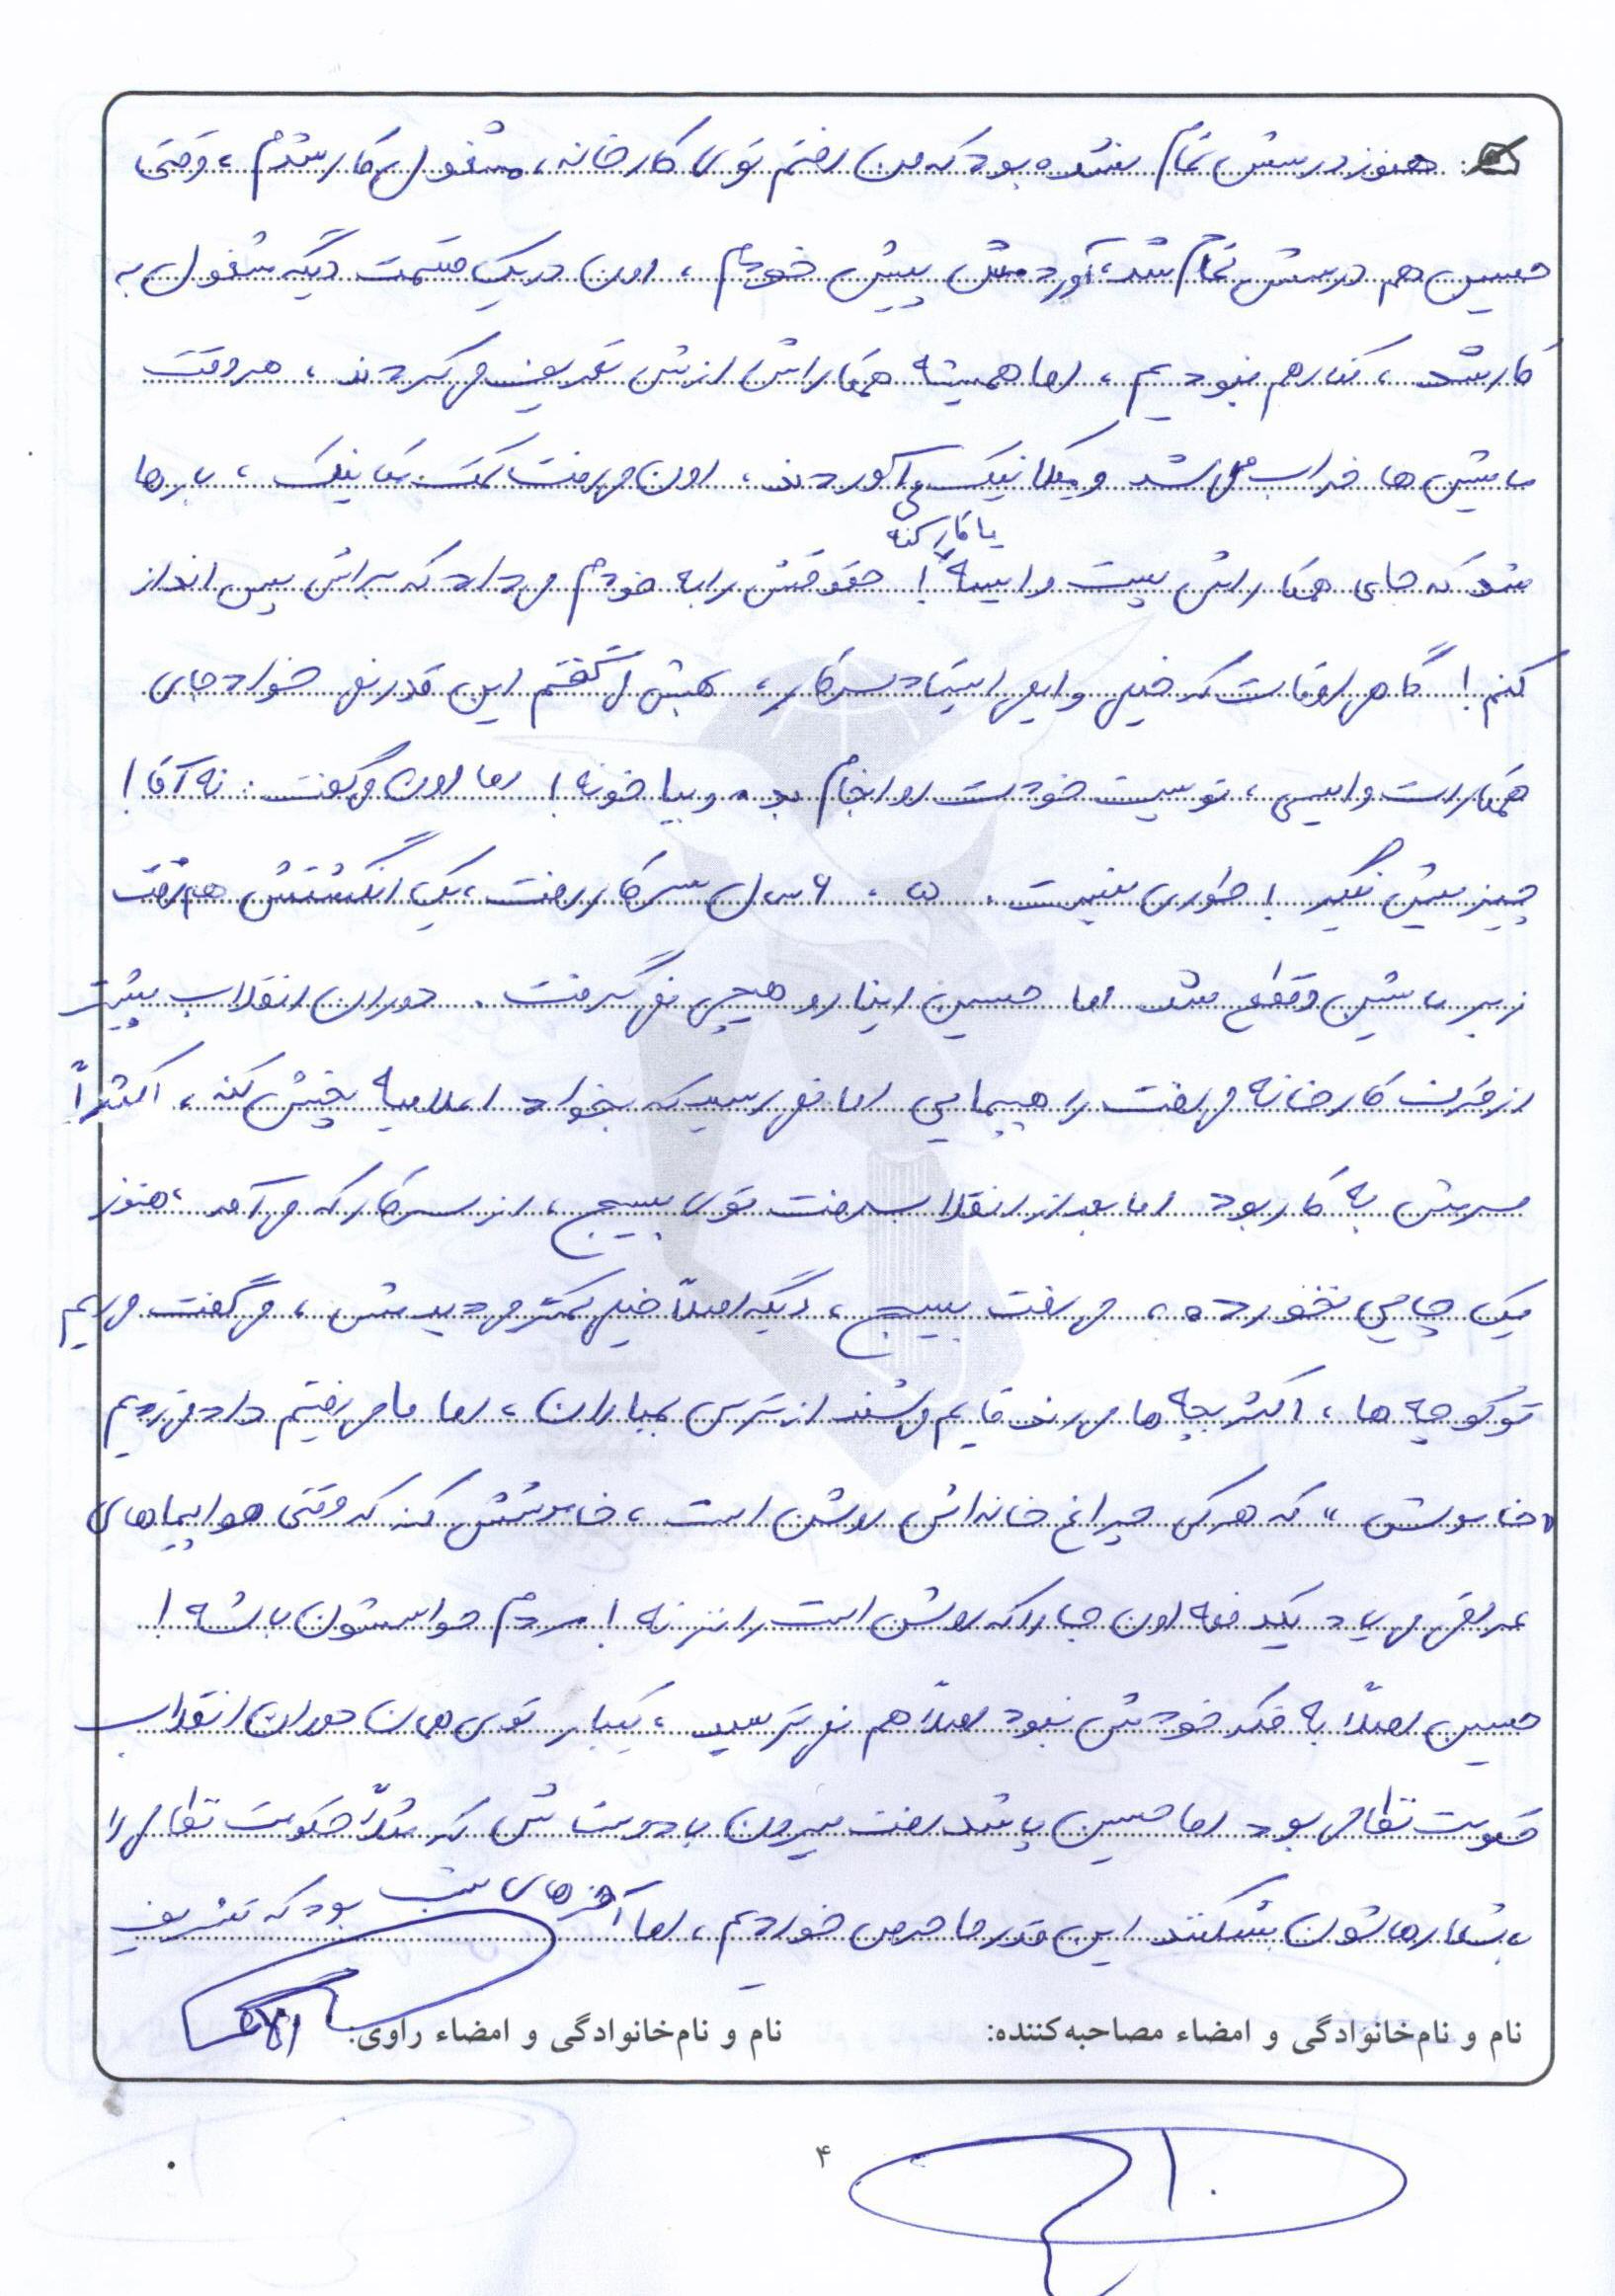 هنوز درسش تمام نشده بود که من رفتم توی کارخانه، مشغول کار شدم، وقتی
حسین هم درسش تمام شد، آوردمش پیش خودم، اون در یک قسمت دیگه مشغول به
کار شد، کنار هم نبودیم، اما همیشه همکاراش ازش تعریف می‌کردند، هر وقت
ماشین‌ها خراب می‌شد و مکانیک می‌آوردند، اون می‌رفت کمک مکانیک، بارها
یا کار کنه
شد که جای همکاراش پست وایسه! حقوقش را به خودم می‌داد که براش پس‌انداز
کنم! گاهی اوقات که خیلی وایمی‌ایستاد سرکار، بهش می‌گفتم این قدر نمی‌خواد جای
همکارات وایسی، تو پست خودت رو انجام بده و بیا خونه! اما اون می‌گفت: نه آقا!
چیزیش نگیر! طوری نیست. ۵، ۶ سال سر کار رفت، یک انگشتش هم رفت
زیر ماشین و قطع شد اما حسین اینا رو هیچی نمی‌گرفت. دوران انقلاب بیشتر
از طرف کارخانه می‌رفت راهپیمایی اما نمی‌رسید که بخواد اعلامیه پخش کنه، اکثراً
سرش به کار بود اما بعد از انقلاب رفت توی بسیج، از سر کار که می‌آمد، هنوز
یک چایی نخورده، می‌رفت بسیج، دیگه اصلاً خیلی کمتر می‌دیدیمش، می‌گفت می‌ریم
تو کوچه‌ها، اکثر بچه‌ها می‌رند قایم می‌شند از ترس بمباران، اما ما می‌رفتیم داد می‌زدیم
«خاموش» که هرکی چراغ خانه‌اش روشن است، خاموشش کنه که وقتی هواپیماهای
عراقی می‌یاد یکدفعه اون جا را که روشن است را نزنه! مردم حواستون باشه!
حسین اصلاً به فکر خودش نبود اصلاً هم نمی‌ترسید، یکبار توی همان دوران انقلاب
حکومت نظامی بود اما حسین پا شد رفت بیرون با دوستاش که مثلاً حکومت نظامی را
با شعارهاشون بشکنند این قدر ما حرص خوردیم، اما آخرهای شب بود که تشریف
نام و نام‌خانوادگی و امضاء مصاحبه‌کننده: نام و نام‌خانوادگی و امضاء راوی:
۴